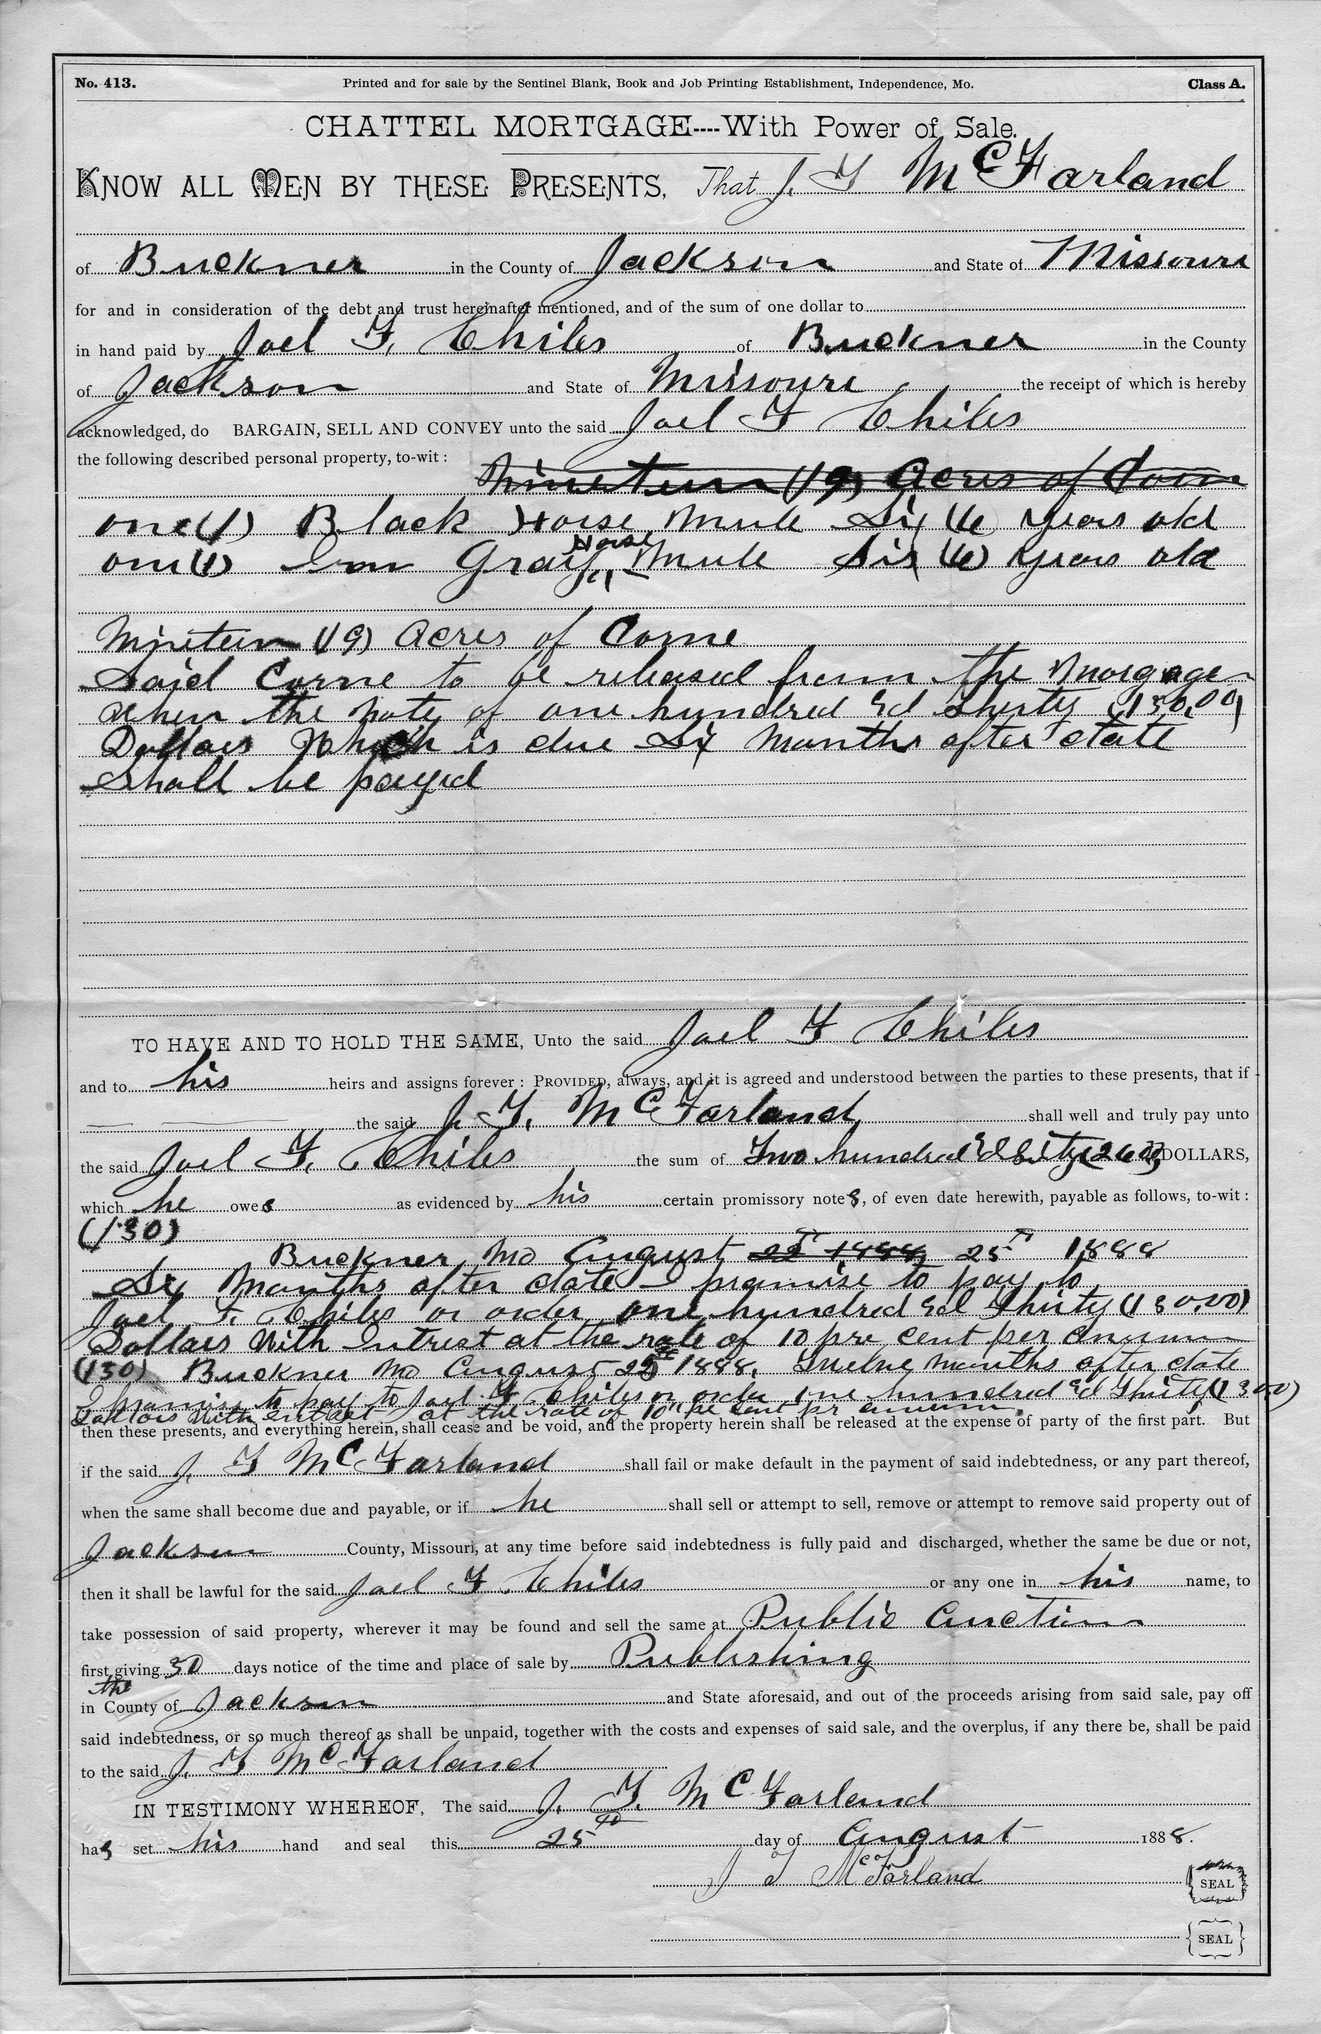 No. 413. Printed and for sale by the Sentinel Blank, Book and Job Printing Establishment, Independence, Mo. Class A.
CHATTEL MORTGAGE----With Power of Sale.
KNOW ALL MEN BY THESE PRESENTS, That J. F McFarland
of Buckner in the County of Jackson and State of Missouri
for and in consideration of the debt and trust hereinafter mentioned, and of the sum of one dollar to
in hand paid by Joel F. Chiles of Buckner in the County
of Jackson and State of Missouri the receipt of which is hereby
acknowledged, do BARGAIN, SELL AND CONVEY unto the said Joel F Chiles
the following described personal property, to-wit :
Nineteen (19) Acres of Corn
one (1) Black Horse Mule Six (6) Years old
one (1) Iron Gray Horse Mule Six (6) Years old
Nineteen (19) Acres of Corne
Said Corne to be released from the Morgage
when the note of one hundred & Thirty (130.00)
Dollars Which is due Six Months after date
shall be payed
TO HAVE AND TO HOLD THE SAME, Unto the said Joel F Chiles
and to his heirs and assigns forever : PROVIDED, always, and it is agreed and understood between the parties to these presents, that if
the said J. F. McFarland shall well and truly pay unto
the said Joel F. Chiles the sum of Two hundred & Sixty (260) DOLLARS,
which he owes as evidenced by his certain promissory notes, of even date herewith, payable as follows, to-wit :
(130)
Buckner Mo August 22th 1888 25th 1888
Six Months after date I promise to pay to
Joel F. Chiles or order one hundred & Thirty (130.00)
Dollars With Intrest at the rate of 10 pre cent per Annum
(130) Buckner Mo August 25 1888. Twelve Months after date
I promis to pay to Joel F. Chiles or order one hundred & Thirty (130.00)
Dollars With intrest at the rate of 10 pe Cent pr annum.
then these presents, and everything herein, shall cease and be void, and the property herein shall be released at the expense of party of the first part. But
if the said J. F McFarland shall fail or make default in the payment of said indebtedness, or any part thereof,
when the same shall become due and payable, or if he shall sell or attempt to sell, remove or attempt to remove said property out of
Jackson County, Missouri, at any time before said indebtedness is fully paid and discharged, whether the same be due or not,
then it shall be lawful for the said Joel F Chiles or any one in his name, to
take possession of said property, wherever it may be found and sell the same at Public Auction
first giving 30 days notice of the time and place of sale by Publishing
in the County of Jackson and State aforesaid, and out of the proceeds arising from said sale, pay off
said indebtedness, or so much thereof as shall be unpaid, together with the costs and expenses of said sale, and the overplus, if any there be, shall be paid
to the said J. F McFarland
IN TESTIMONY WHEREOF, The said J. F. McFarland
has set his hand and seal this 25th day of August 1888.
J F McFarland SEAL
SEAL